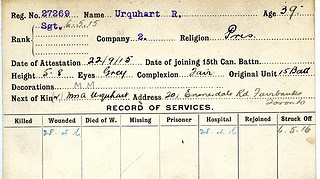 Reg. No. 27269 Name Urquhart R. Age 39.
Sgt. 6.7.15
Rank Company 2. Religion Pres.
Date of Attestation 22/9/15 Date of joining 15th Can. Battn.
Height 5.8 Eyes Grey Complexion Fair Original Unit 15 Batt
Decorations M M
Next of Kin Urquhart Address 20, Rd Fairbanks
Toronto
RECORD OF SERVICES.
Killed Wounded Died of W. Missing Prisoner Hospital Rejoined Struck Off
28.4.16 28.4.16 6.5.16